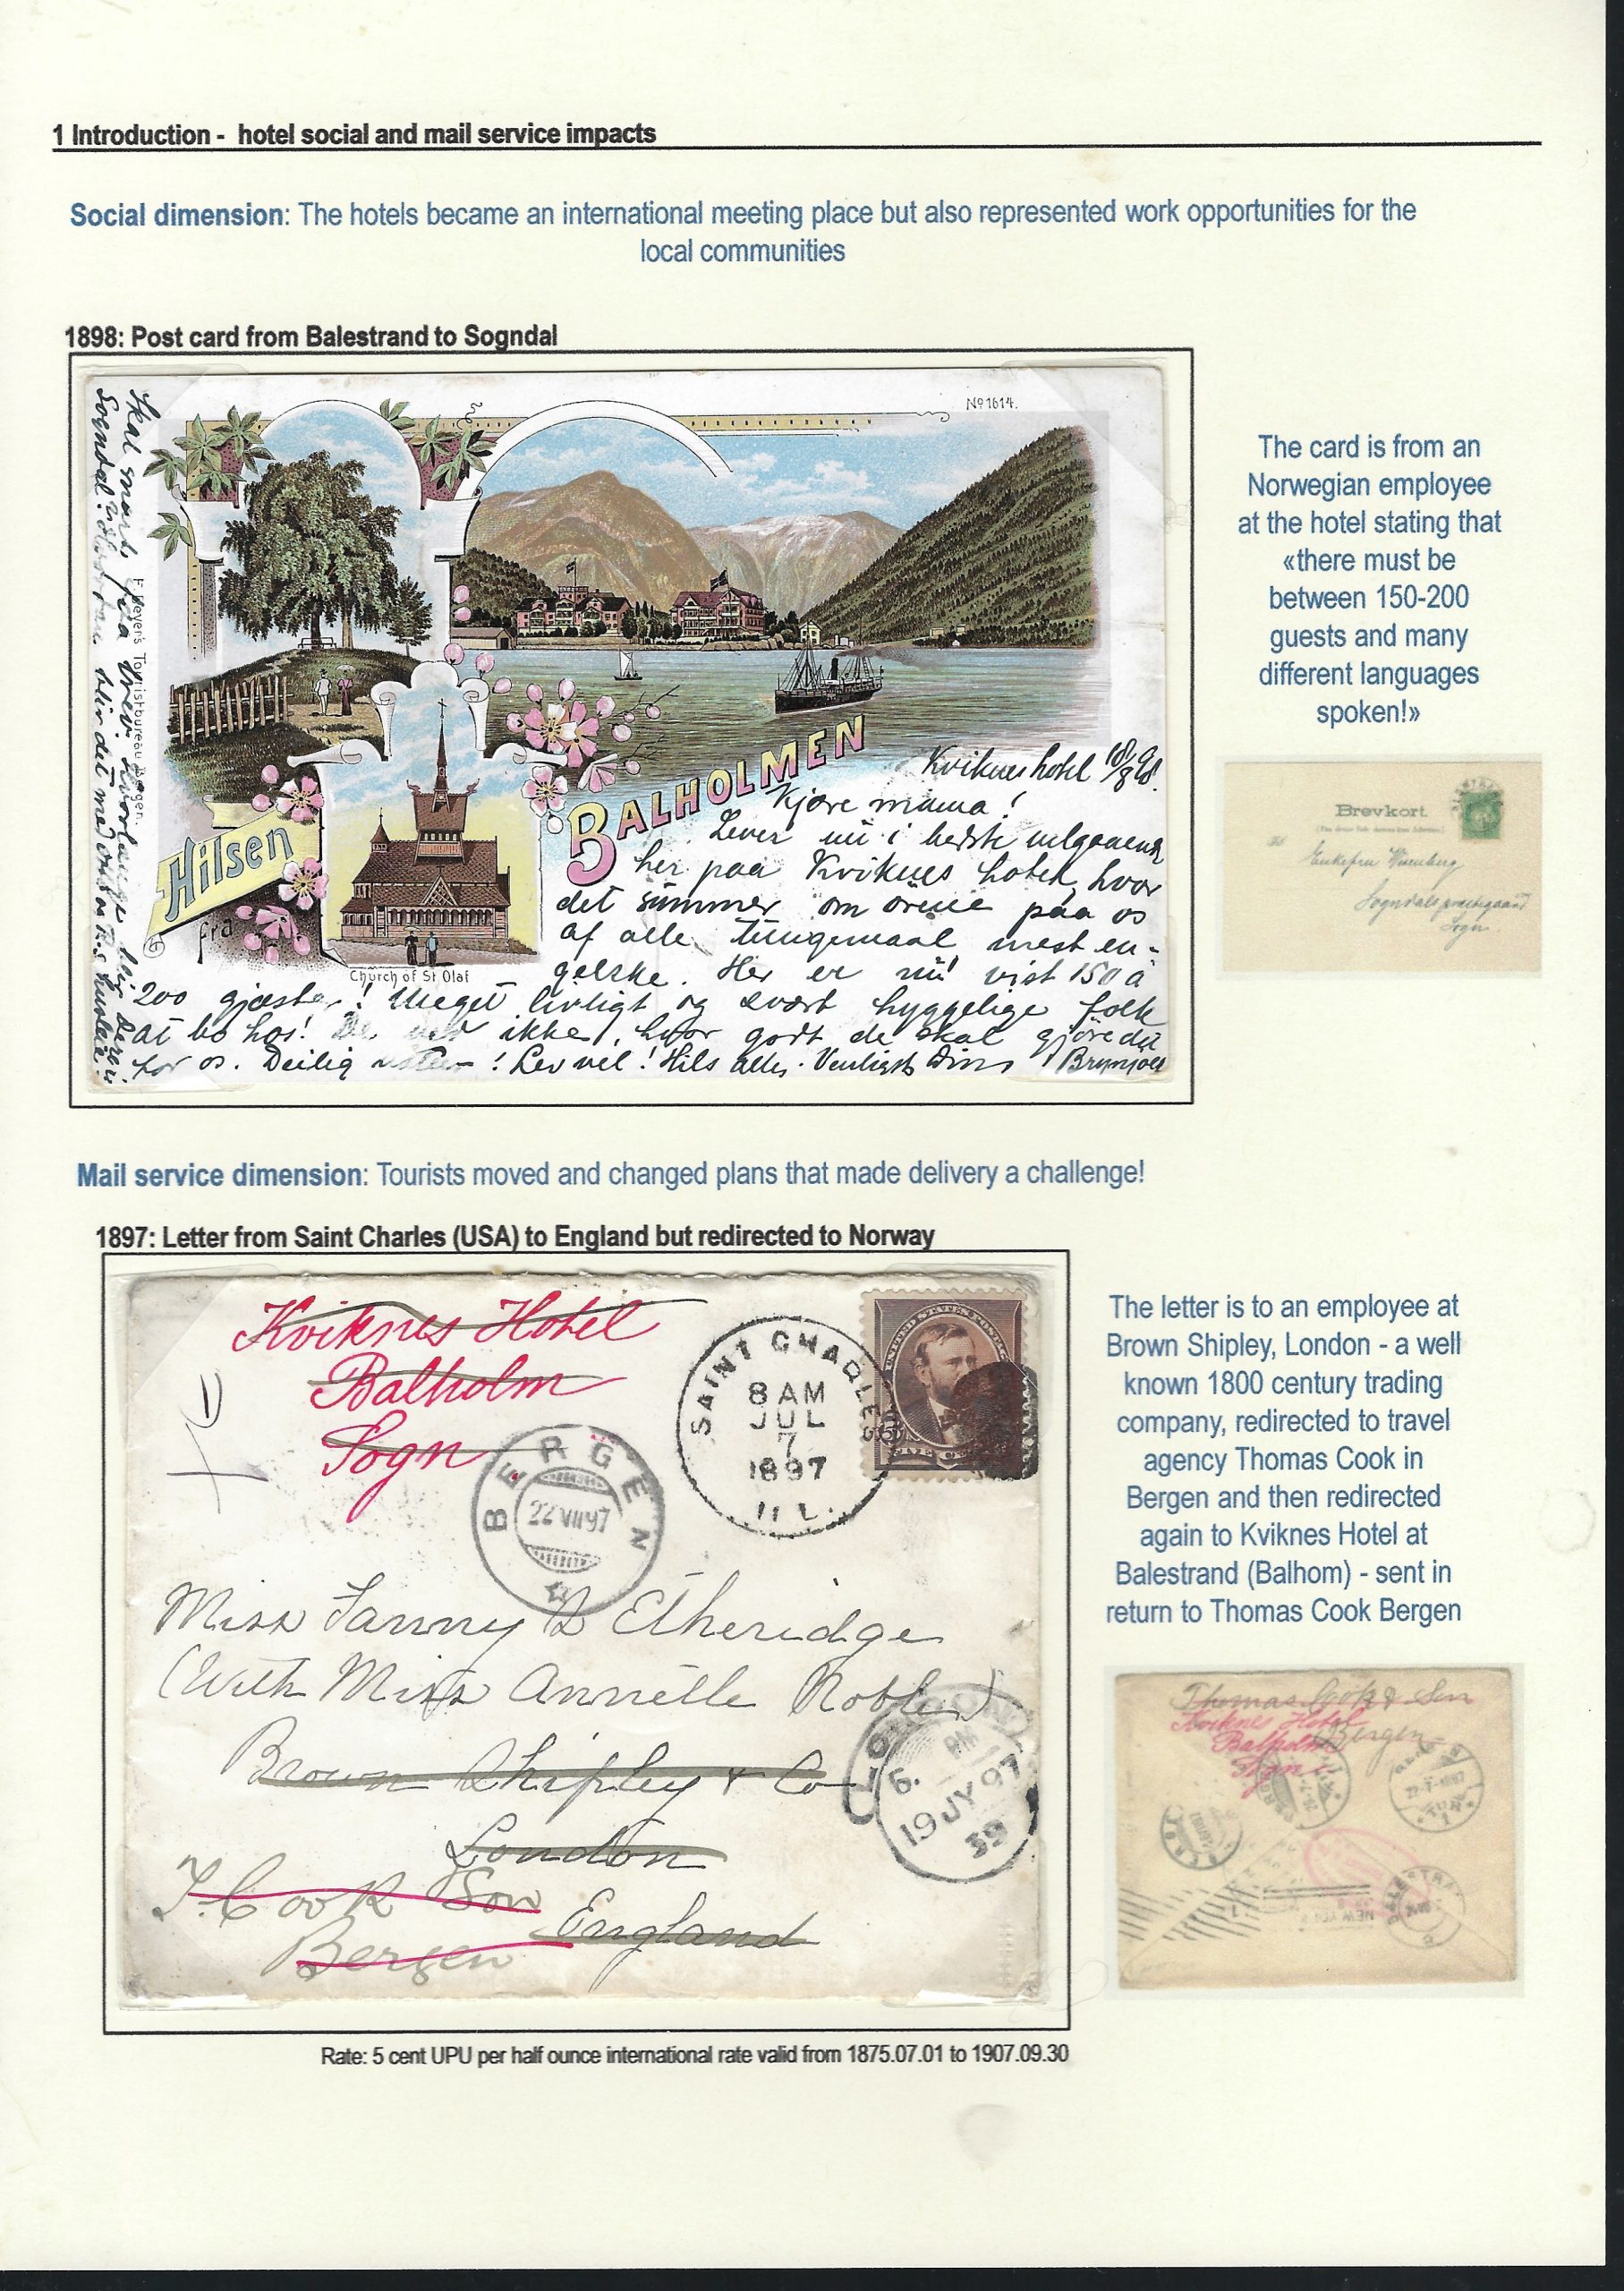 1 Introduction - hotel social and mail service impacts
Social dimension: The hotels became an international meeting place but also represented work opportunities for the
local communities
1898: Post card from Balestrand to Sogndal
Nº 1614.
Hilsen
fra
BALHOLMEN
Church of St Olaf
F. Beyer's Touristbureau Bergen.
Kviknes hotel 18/8 98.
Kjære mama!
Lever nu i bedste velgaaende
her paa Kviknes hotel, hvor
det summer om ørene paa os
af alle tungemaal mest en-
gelske. Her er nu vist 150 à
200 gjæster! Meget livligt og svært hyggelige folk
at bo hos! De ved ikke, hvor godt de skal gjøre det
for os. Deilig natur! Lev vel! Hils alle. Venligst Din
Skal snart
Sogndal
The card is from an
Norwegian employee
at the hotel stating that
«there must be
between 150-200
guests and many
different languages
spoken!»
Brevkort.
Enkefru
Sogndals præstegaard
Sogn.
Mail service dimension: Tourists moved and changed plans that made delivery a challenge!
1897: Letter from Saint Charles (USA) to England but redirected to Norway
Kviknes Hotel
Balholm
Sogn
BERGEN
22 VII 97
SAINT CHARLES
8 AM
JUL
7
1897
ILL.
UNITED STATES POSTAGE
FIVE CENTS
Miss Fanny D Etheridge
(With Miss Annette Noble)
Brown Shipley & Co
London
England
T. Cook Son
Bergen
LONDON
6. AM
19 JY 97
39
The letter is to an employee at
Brown Shipley, London - a well
known 1800 century trading
company, redirected to travel
agency Thomas Cook in
Bergen and then redirected
again to Kviknes Hotel at
Balestrand (Balhom) - sent in
return to Thomas Cook Bergen
Thomas Cook & Son
Bergen
Kviknes Hotel
Balholm
Sogn
NEW YORK
Rate: 5 cent UPU per half ounce international rate valid from 1875.07.01 to 1907.09.30